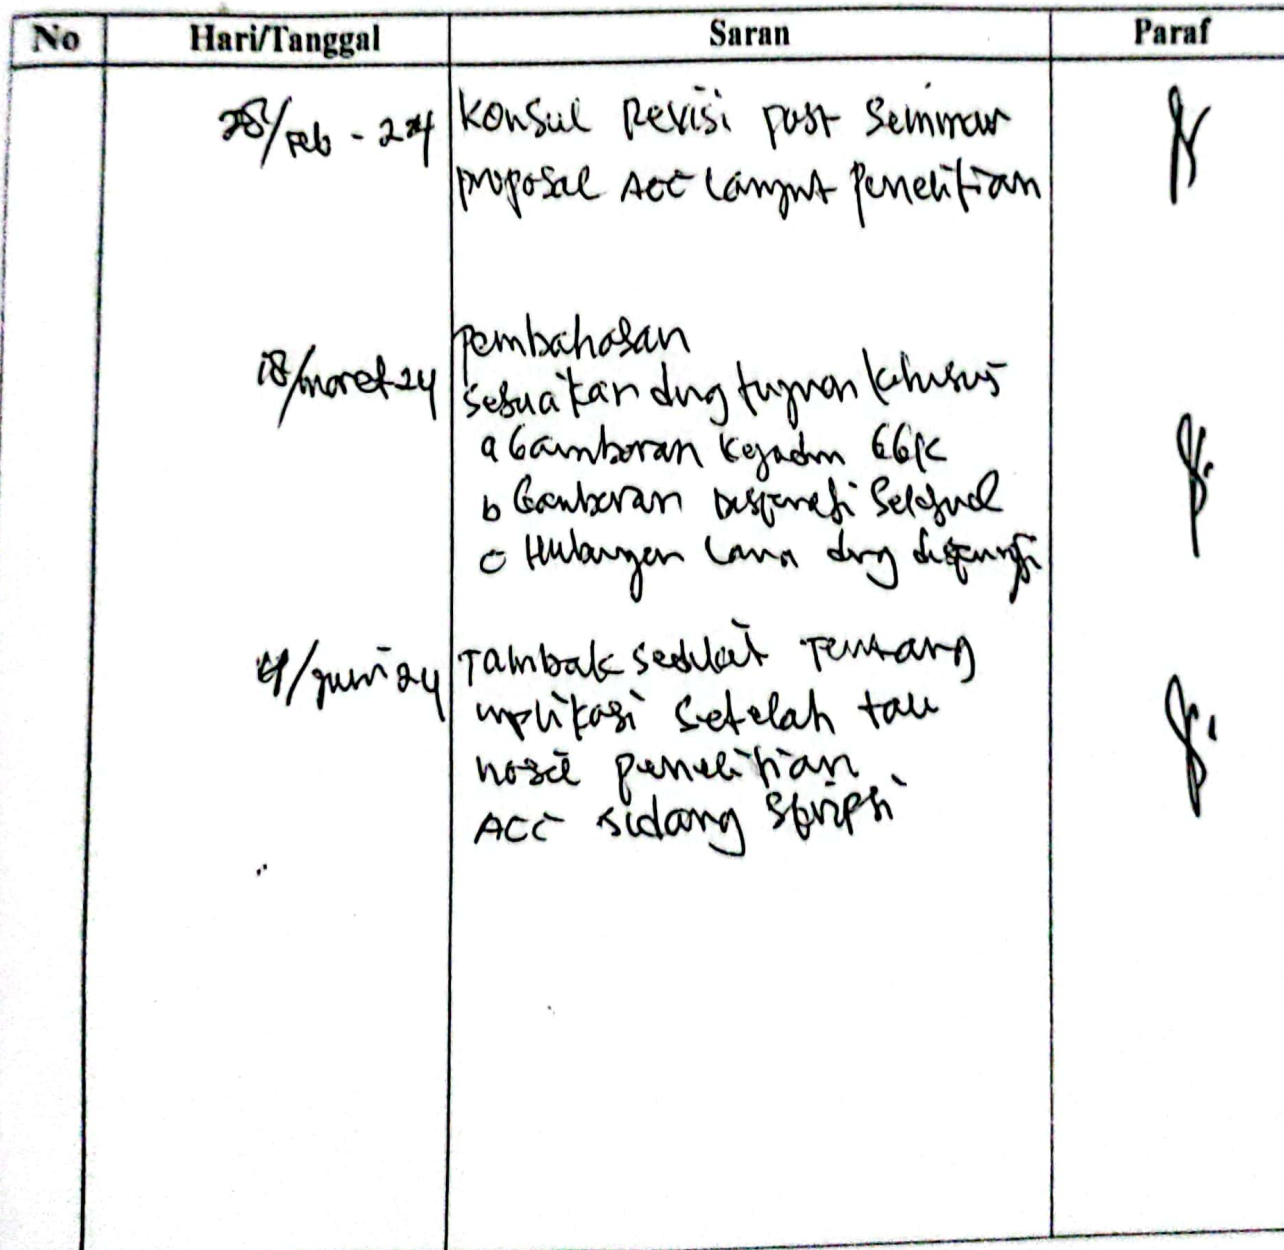 No Hari/Tanggal Saran Paraf
28/Feb - 24 Konsul Revisi post Seminar
proposal ACC Lanjut Penelitian
pembahasan
18/maret 24 Sesuaikan dng tujuan khusus
a Gambaran Kejadian GGK
b Gambaran Disfungsi Seksual
c Hubungan Lama dng disfungsi
4/Juni 24 Tambah sedikit Tentang
implikasi Setelah tau
hasil penelitian
ACC sidang Skripsi